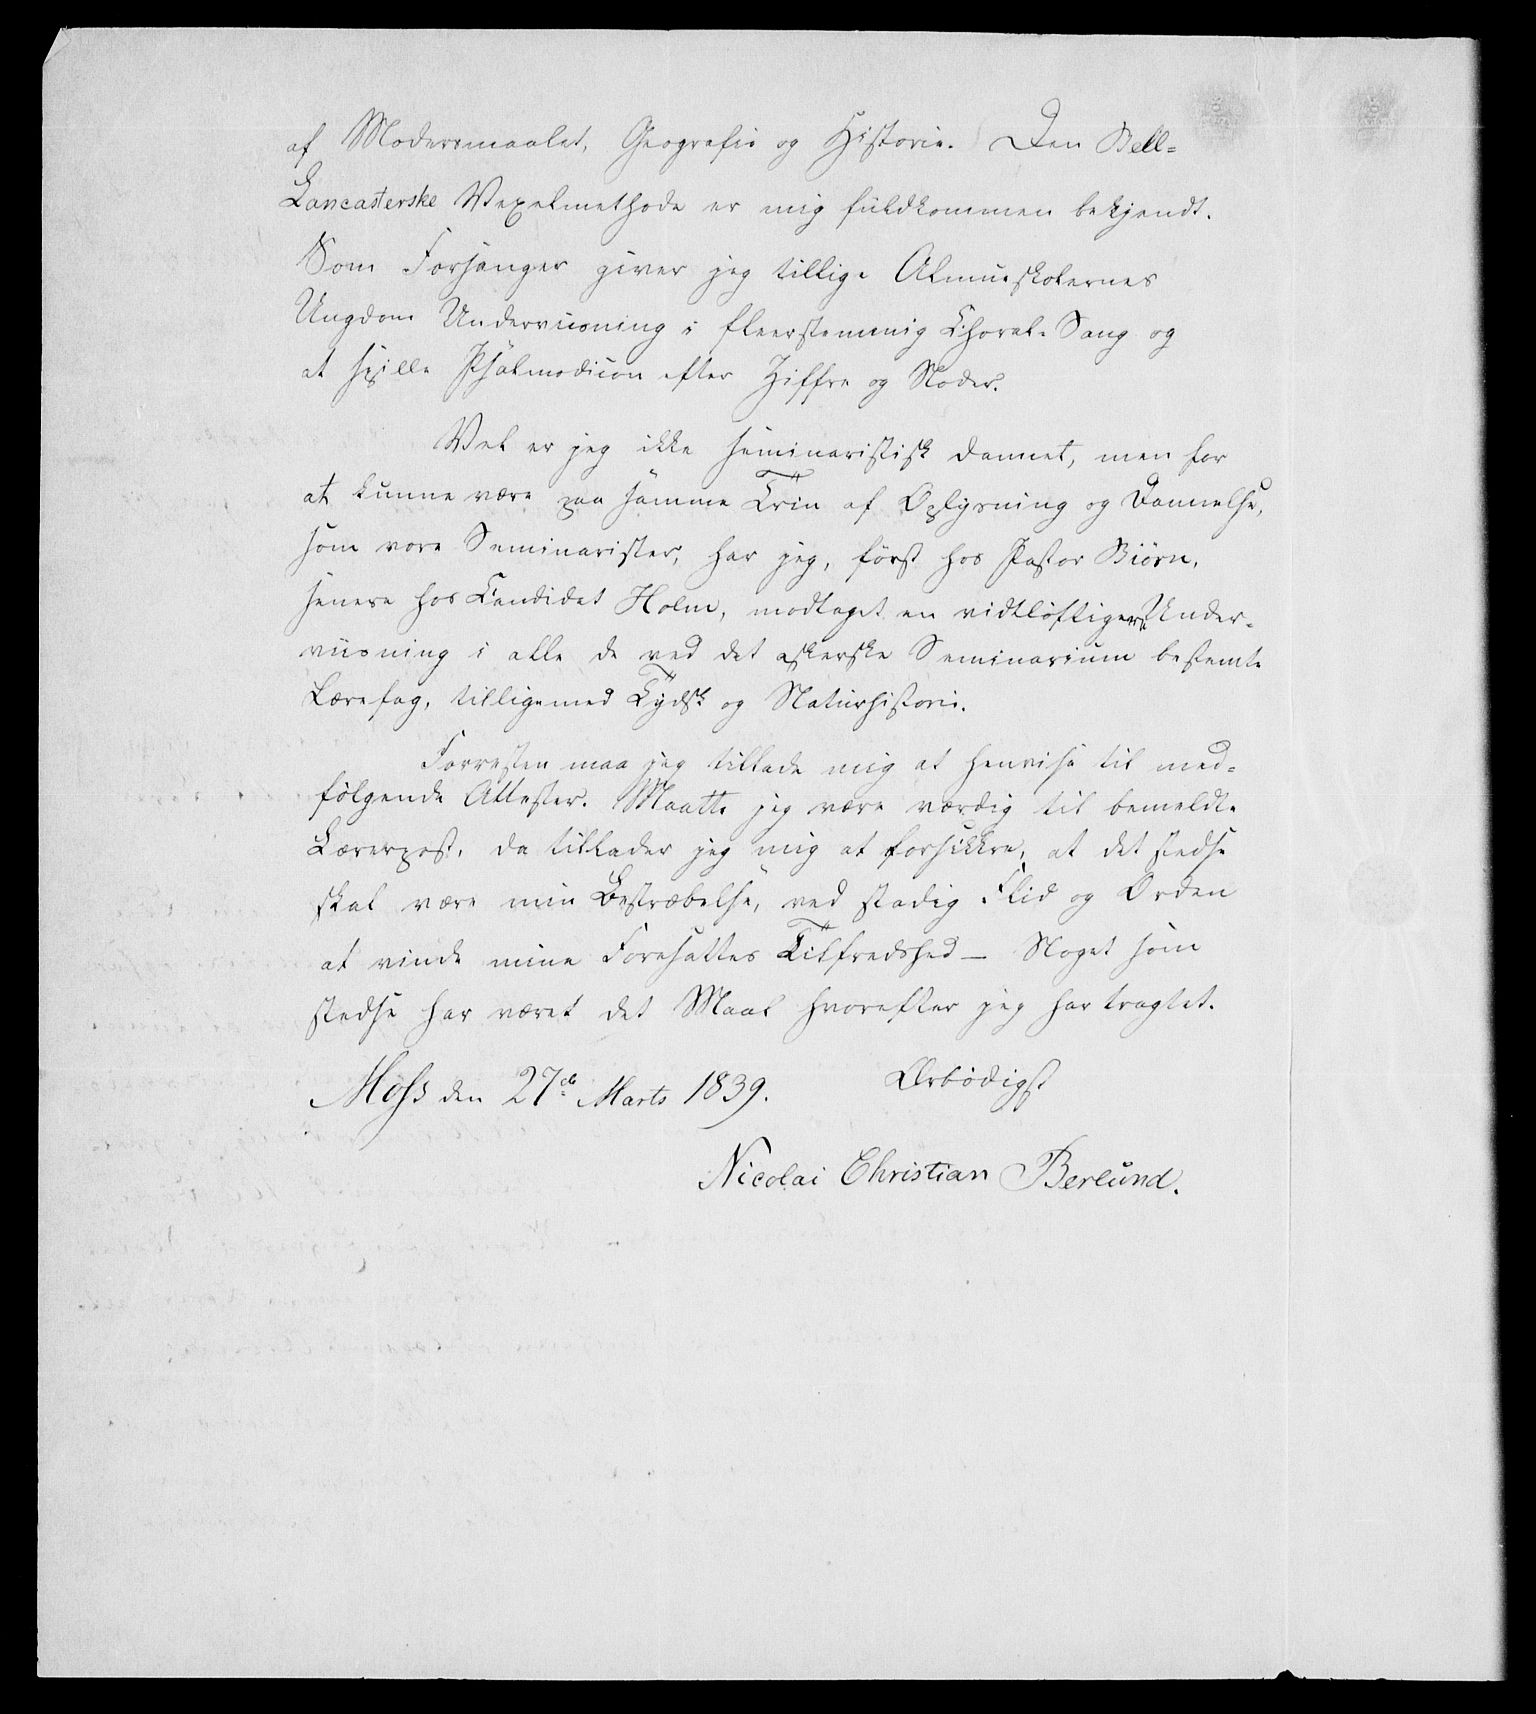 af Modersmaalet, Geografie og Historie. Den Bell=
Lancasterske Vexelmethode er mig fuldkommen bekjendt.
Som Forsanger giver jeg tillige Almueskolernes
Ungdom Underviisning i fleerstemmig Choral-Sang og
at spille Psalmodicon efter Ziffre og Noder.
Vel er jeg ikke seminaristisk dannet, men for
at kunne være paa samme Trin af Oplysning og Dannelse,
som vore Seminarister, har jeg, først hos Pastor Biörn,
senere hos Candidat Holm, modtaget en vidtløftigere Under-
viisning i alle de ved det askerske Seminarium bestemte
Lærefag, tilligemed Tydsk og Naturhistorie.
Forresten maa jeg tillade mig at henvise til med=
følgende Attester. Maatte jeg være værdig til bemeldte
Lærerpost, da tillader jeg mig at forsikkre, at det stedse
skal være min Bestræbelse, ved stadig Flid og Orden
at vinde mine Foresattes Tilfredshed — Noget som
stedse har været det Maal hvorefter jeg har tragtet.
Moss den 27de Marts 1839. Ærbødigst
Nicolai Christian Berlund.